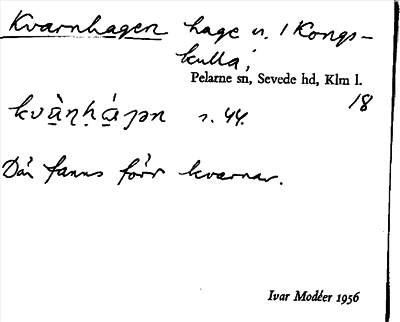 Kvarnhagen hage n. 1 Kongs-
kulla;
Pelarne sn, Sevede hd, Klm l.
18
s. 44.
Där fanns förr kvarnar.
Ivar Modéer 1956